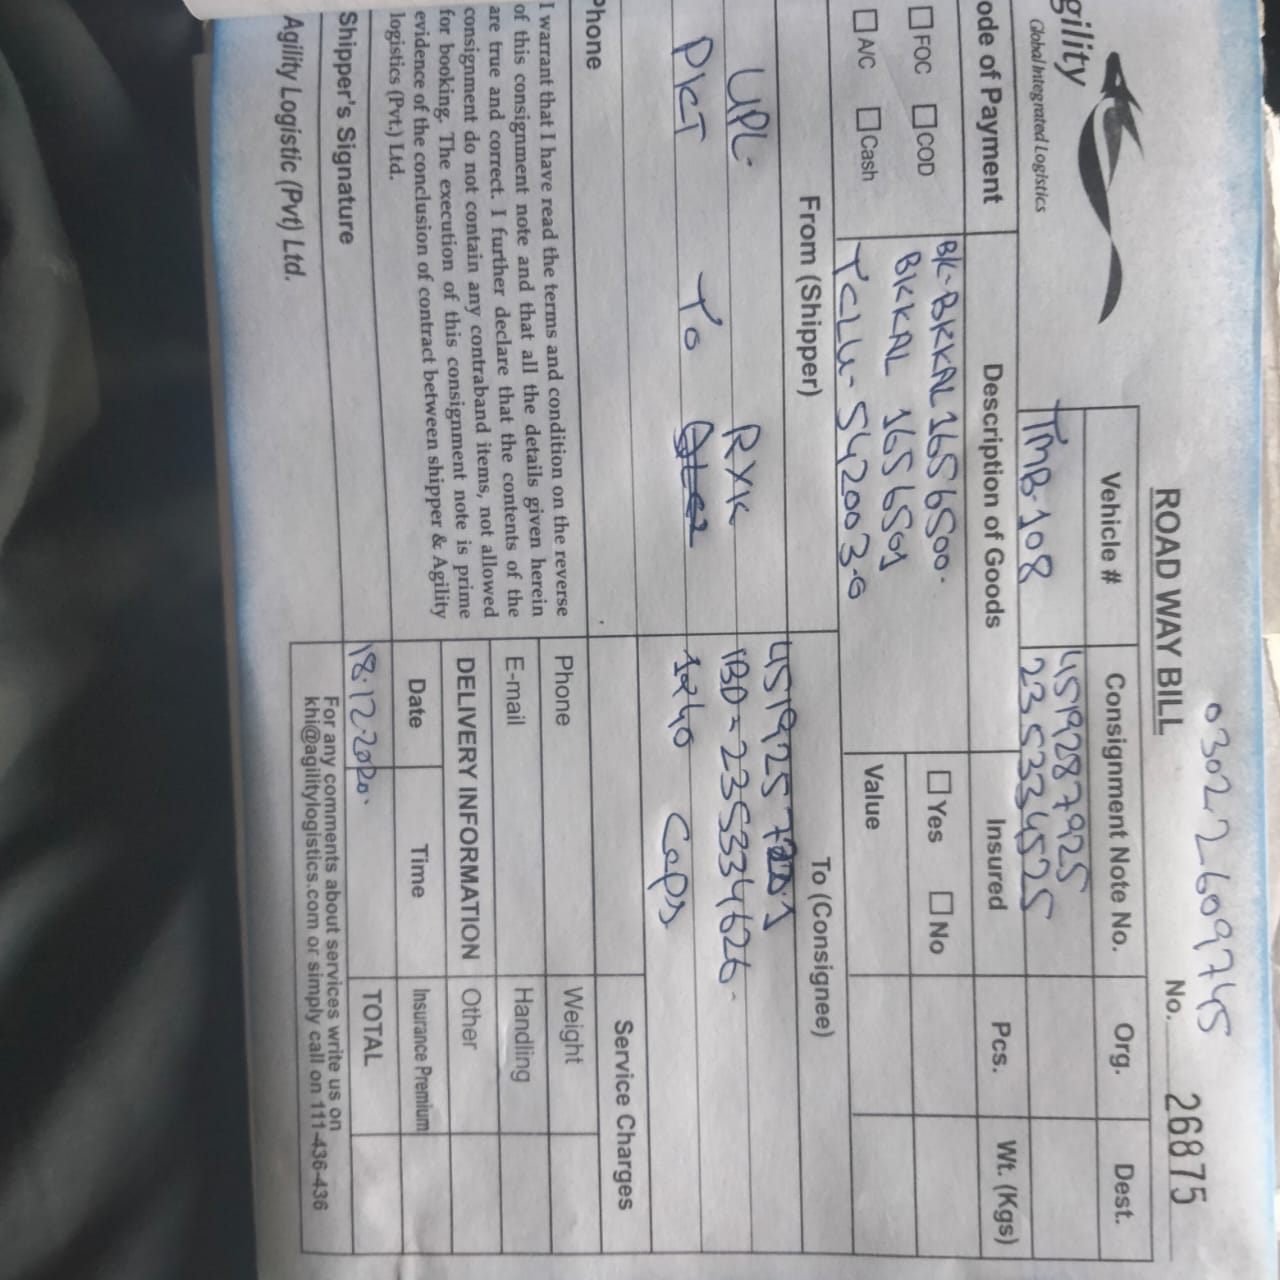 03022609745
ROAD WAY BILL
No. 26875
gility
Global Integrated Logistics
Vehicle #
Consignment Note No.
Org.
Dest.
TMB-108
4519287925
235334525
ode of Payment
Description of Goods
Insured
Pcs.
Wt. (Kgs)
FOC
COD
A/C
Cash
BK-BKKAL 1656500.
BKKAL 1656501
TCLU-542003-0
Yes
No
Value
From (Shipper)
To (Consignee)
UPL-
RYK
PKT To
451925
IBD = 235334626-
1240 Caps
Phone
Service Charges
I warrant that I have read the terms and condition on the reverse
of this consignment note and that all the details given herein
are true and correct. I further declare that the contents of the
consignment do not contain any contraband items, not allowed
for booking. The execution of this consignment note is prime
evidence of the conclusion of contract between shipper & Agility
logistics (Pvt.) Ltd.
Phone
E-mail
DELIVERY INFORMATION
Date
Time
18.12.2020.
Weight
Handling
Other
Insurance Premium
TOTAL
Shipper's Signature
Agility Logistic (Pvt) Ltd.
For any comments about services write us on
khi@agilitylogistics.com or simply call on 111-436-436